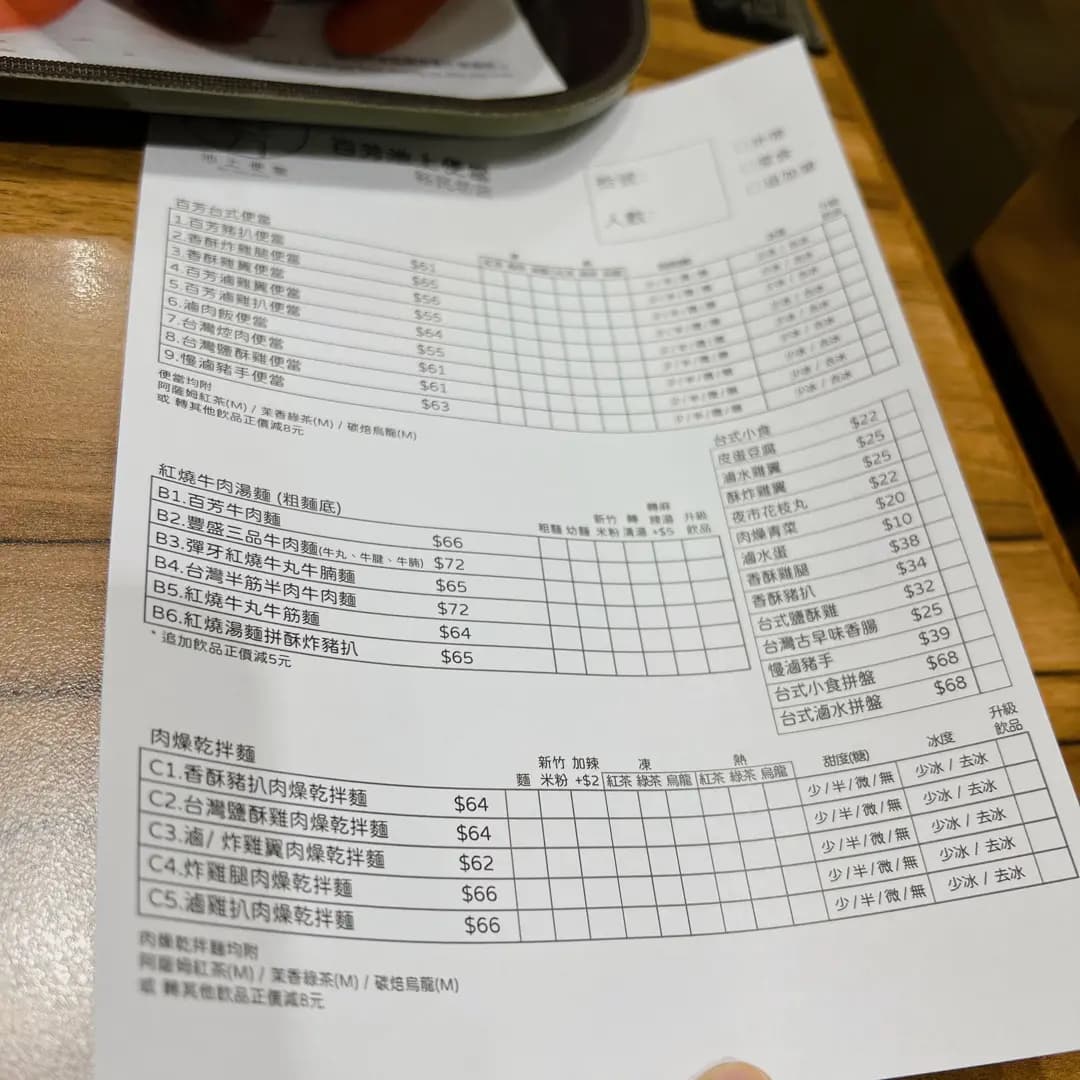 池上便當
枱號:
人數:
百芳台式便當
1.百芳豬扒便當 $61
2.香酥炸雞腿便當 $65
3.香酥雞翼便當 $56
4.百芳滷雞翼便當 $55
5.百芳滷雞扒便當 $64
6.滷肉飯便當 $55
7.台灣焢肉便當 $61
8.台灣鹽酥雞便當 $61
9.慢滷豬手便當 $63
便當均附
阿薩姆紅茶(M) / 茉香綠茶(M) / 碳焙烏龍(M)
或 轉其他飲品正價減8元
台式小食 $22
皮蛋豆腐 $25
滷水雞翼 $25
酥炸雞翼 $22
夜市花枝丸 $20
肉燥青菜 $10
滷水蛋 $38
香酥雞腿 $34
香酥豬扒 $32
台式鹽酥雞 $25
台灣古早味香腸 $39
慢滷豬手 $68
台式小食拼盤 $68
台式滷水拼盤
紅燒牛肉湯麵 (粗麵底)
粗麵 幼麵 新竹米粉 轉清湯 轉麻辣湯+$5 升級飲品
B1.百芳牛肉麵 $66
B2.豐盛三品牛肉麵(牛丸、牛腱、牛腩) $72
B3.彈牙紅燒牛丸牛腩麵 $65
B4.台灣半筋半肉牛肉麵 $72
B5.紅燒牛丸牛筋麵 $64
B6.紅燒湯麵拼酥炸豬扒 $65
* 追加飲品正價減5元
肉燥乾拌麵
麵 新竹米粉 加辣+$2 凍 紅茶 綠茶 烏龍 熱 紅茶 綠茶 烏龍 甜度(糖) 冰度 升級飲品
C1.香酥豬扒肉燥乾拌麵 $64 少/半/微/無 少冰 / 去冰
C2.台灣鹽酥雞肉燥乾拌麵 $64 少/半/微/無 少冰 / 去冰
C3.滷/ 炸雞翼肉燥乾拌麵 $62 少/半/微/無 少冰 / 去冰
C4.炸雞腿肉燥乾拌麵 $66 少/半/微/無 少冰 / 去冰
C5.滷雞扒肉燥乾拌麵 $66 少/半/微/無 少冰 / 去冰
肉燥乾拌麵均附
阿薩姆紅茶(M) / 茉香綠茶(M) / 碳焙烏龍(M)
或 轉其他飲品正價減8元